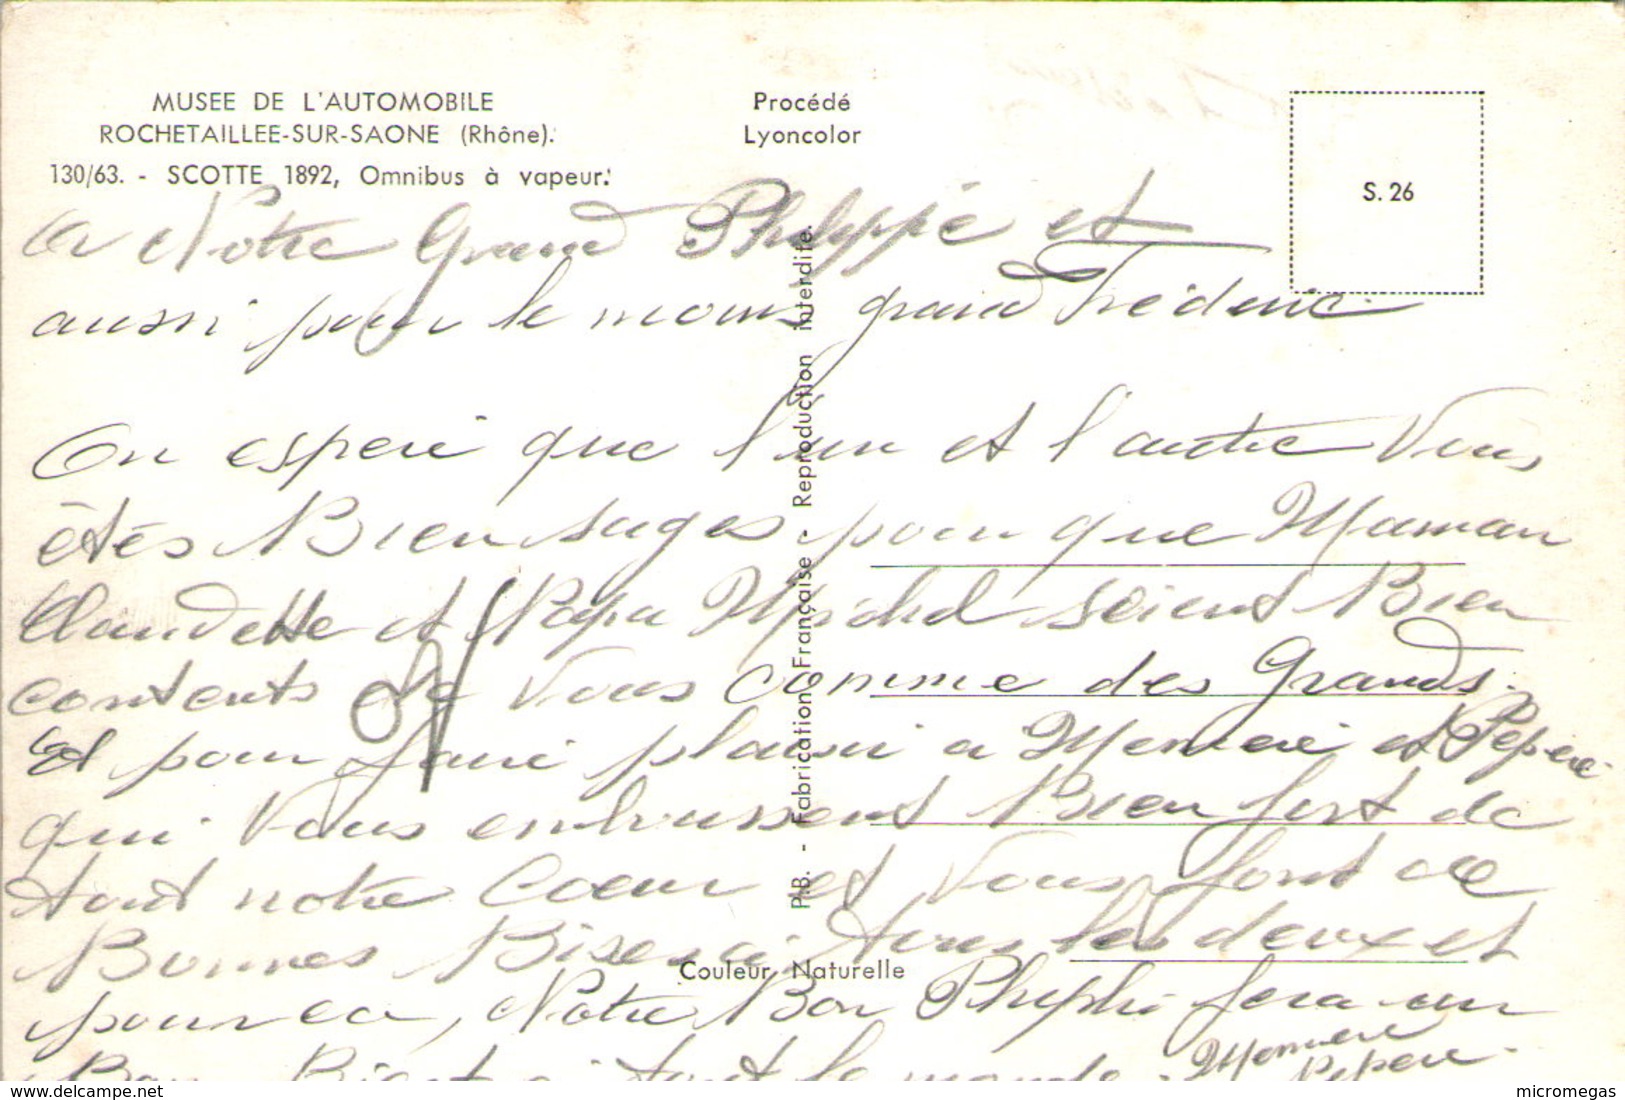 MUSEE DE L'AUTOMOBILE
ROCHETAILLEE-SUR-SAONE (Rhône).
130/63. - SCOTTE 1892, Omnibus à vapeur.
Procédé
Lyoncolor
S. 26
a Notre Grand Philippe et
aussi pour le moins grand Frédéric.
On espere que l'un et l'autre Vous
êtés Bien sages pour que Maman
Claudette et Papa Michel soient Bien
contents de Vous comme des Grands.
Et pour faire plaisir a Memere et Pépere
qui Vous embrassent Bien fort de
tout notre Coeur et Vous font de
Bonnes Bises a tous les deux et
pour ca, Notre Bon Phiphi fera un
Bon a tout le monde.
Memere
Pepere.
P.B. - Fabrication Française - Reproduction interdite.
Couleur Naturelle
micromegas
delcampe.net